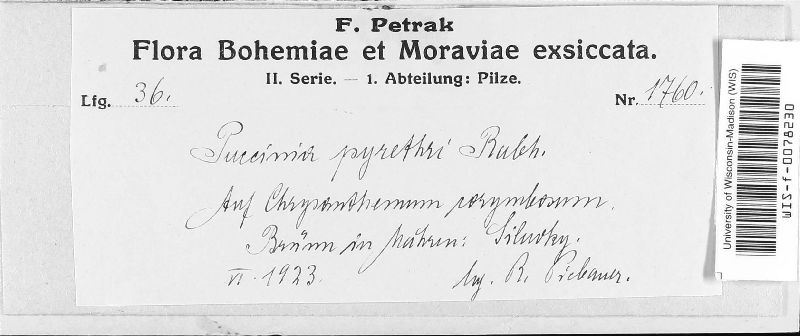 F. Petrak
Flora Bohemiae et Moraviae exsiccata.
II. Serie. — 1. Abteilung: Pilze.
Lfg. 36. Nr. 1760.
Puccinia pyrethri Rabh.
Auf Chrysanthemum corymbosum.
Brünn in Mähren: Siluvky.
VI. 1923. lg. R. Picbauer.
University of Wisconsin-Madison (WIS)
WIS-f-0078230